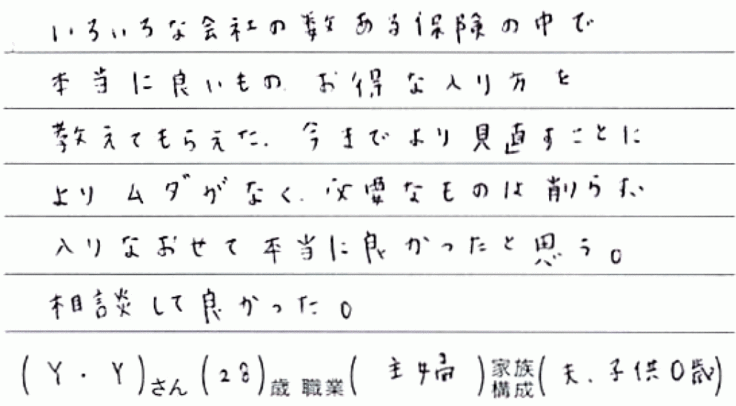 いろいろな会社の数ある保険の中で
本当に良いもの、お得な入り方を
教えてもらえた。今までより見直すことに
よりムダがなく、必要なものは削らず
入りなおせて本当に良かったと思う。
相談して良かった。
(Y・Y)さん(28)歳 職業(主婦)家族構成(夫、子供0歳)